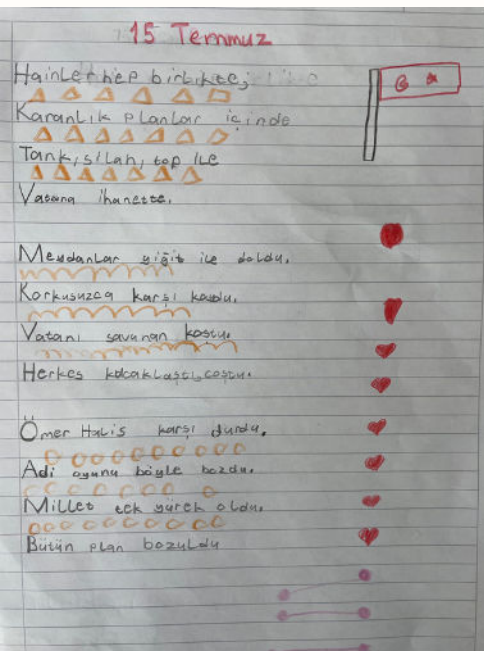 15 Temmuz
Hainler hep birlikte,
Karanlık planlar içinde
Tank, silah, top ile
Vatana ihanette.
Meydanlar yiğit ile doldu.
Korkusuzca karşı koydu.
Vatanı savunan kostu.
Herkes kocaklaştı, coştu.
Ömer Halis karşı durdu.
Adi oyunu böyle bozdu.
Millet tek yürek oldu.
Bütün plan bozuldu